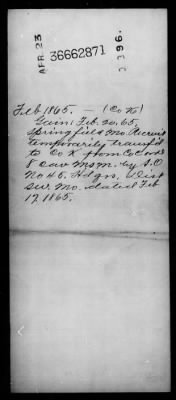 APR 23
36662871
1396.
Feb 1865. — (Co K)
Gain: Feb. 20, 65,
Springfield Mo. Recruit
temporarily transf'd
to Co K from Co
8 Cav MSM. by S.O
No 45. Hdqrs. Dist
sw. Mo. dated Feb
17 1865.